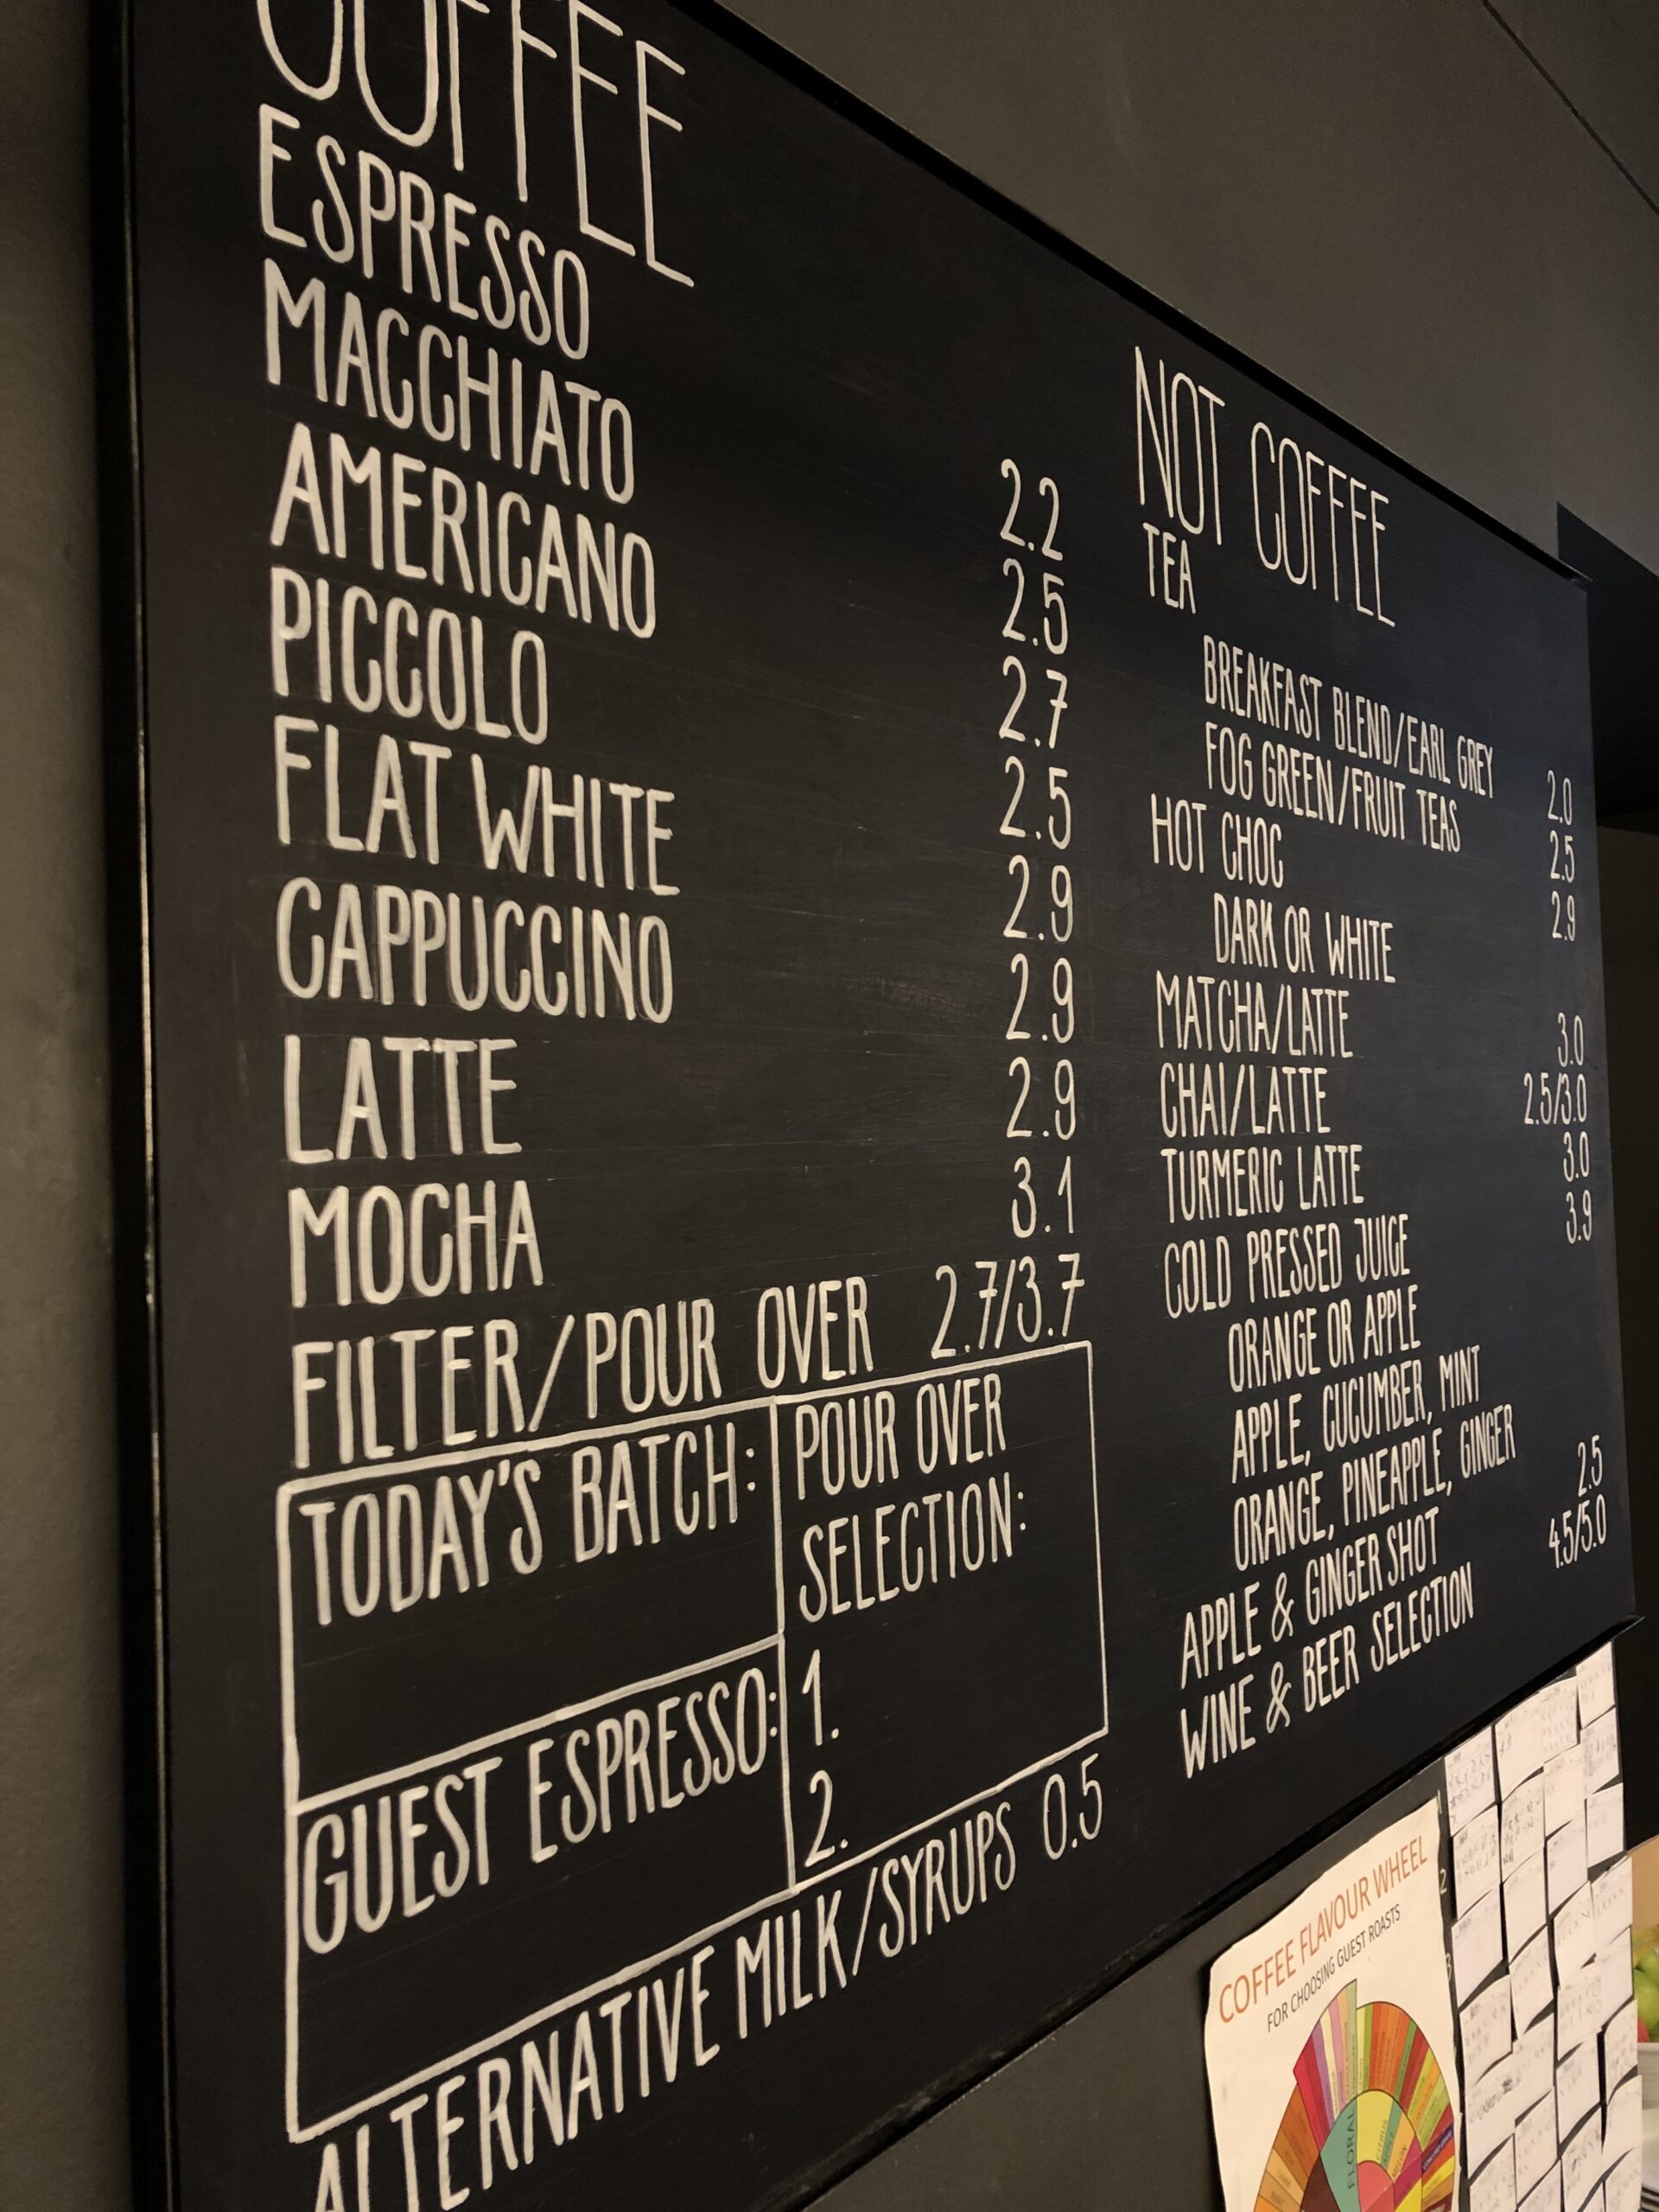 COFFEE
ESPRESSO 2.2
MACCHIATO 2.5
AMERICANO 2.7
PICCOLO 2.5
FLAT WHITE 2.9
CAPPUCCINO 2.9
LATTE 2.9
MOCHA 3.1
FILTER/POUR OVER 2.7/3.7
TODAY'S BATCH:
GUEST ESPRESSO:
POUR OVER
SELECTION:
1.
2.
ALTERNATIVE MILK/SYRUPS 0.5
NOT COFFEE
TEA
BREAKFAST BLEND/EARL GREY 2.0
FOG GREEN/FRUIT TEAS 2.5
HOT CHOC 2.9
DARK OR WHITE
MATCHA/LATTE 3.0
CHAI/LATTE 2.5/3.0
TURMERIC LATTE 3.0
COLD PRESSED JUICE 3.9
ORANGE OR APPLE
APPLE, CUCUMBER, MINT
ORANGE, PINEAPPLE, GINGER
APPLE & GINGER SHOT 2.5
WINE & BEER SELECTION 4.5/5.0
COFFEE FLAVOUR WHEEL
FOR CHOOSING GUEST ROASTS
FLORAL